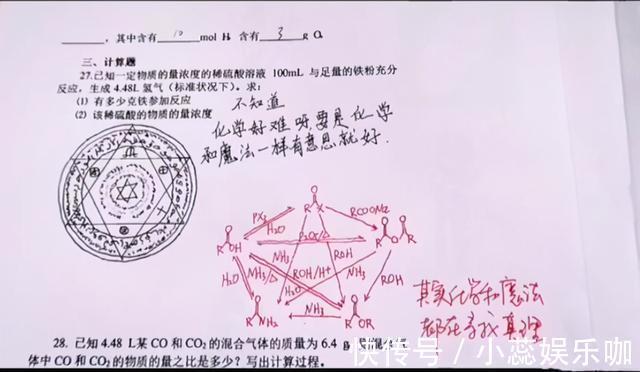 ，其中含有 10 mol H 含有 3 g O
三、计算题
27.已知一定物质的量浓度的稀硫酸溶液 100mL 与足量的铁粉充分
反应，生成 4.48L 氢气（标准状况下）。求：
(1) 有多少克铁参加反应
不知道
(2) 该稀硫酸的物质的量浓度
化学好难呀,要是化学
和魔法一样有意思就好.
R X
PX₃ H₂O RCOONa
R OH P₂O₅/△ R O R
NH₃ ROH
H₂O NH₃/△ ROH/H⁺ NH₃ ROH
H₂O
R NH₂ NH₃ R OR
其实化学和魔法
都在寻找真理
28. 已知 4.48 L某 CO 和 CO₂ 的混合气体的质量为 6.4 g
体中 CO 和 CO₂ 的物质的量之比是多少？写出计算过程。
快传号 / 小蕊娱乐咖